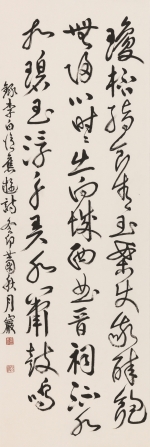 瓊杯綺食青玉案使我醉飽
無歸心時時出向城西曲晉祠流水
如碧玉浮舟弄水簫鼓鳴
錄李白憶舊遊詩 秋月巖